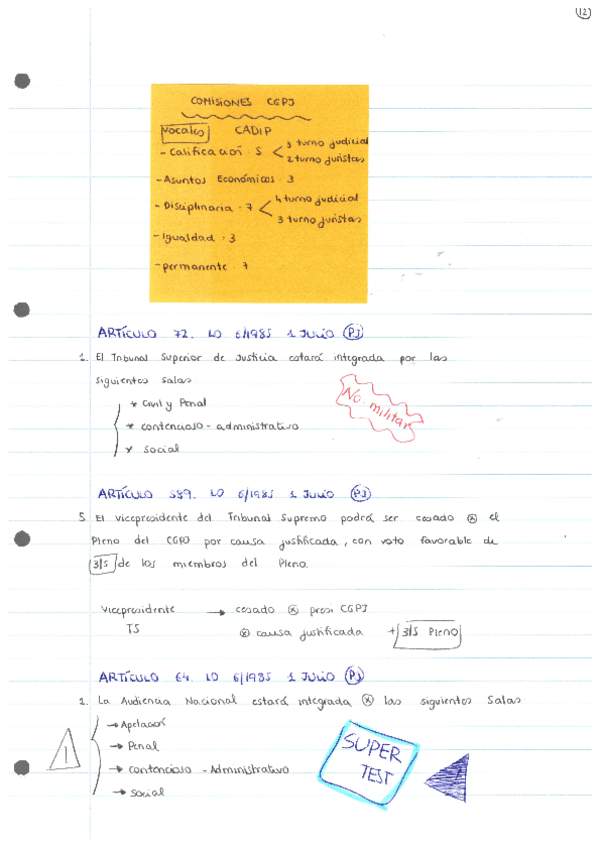 12
COMISIONES CGPJ
Vocales CADIP
- Calificación : 5 < 3 turno judicial
2 turno juristas
- Asuntos Económicos : 3
- Disciplinaria : 7 < 4 turno judicial
3 turno juristas
- Igualdad : 3
- permanente : 7
ARTÍCULO 72. LO 6/1985 1 JULIO (PJ)
1. El Tribunal Superior de Justicia estará integrada por las
siguientes salas
* Civil y Penal
* contencioso - administrativo
* social
No militar
ARTÍCULO 589. LO 6/1985 1 JULIO (PJ)
5. El vicepresidente del Tribunal Supremo podrá ser cesado ⊗ el
Pleno del CGPJ por causa justificada, con voto favorable de
3/5 de los miembros del Pleno.
Vicepresidente → cesado ⊗ presi CGPJ
TS ⊗ causa justificada + 3/5 Pleno
ARTÍCULO 64. LO 6/1985 1 JULIO (PJ)
1. La Audiencia Nacional estará integrada ⊗ las siguientes Salas
→ Apelación
→ Penal
→ contencioso - Administrativo
→ social
!
SUPER
TEST